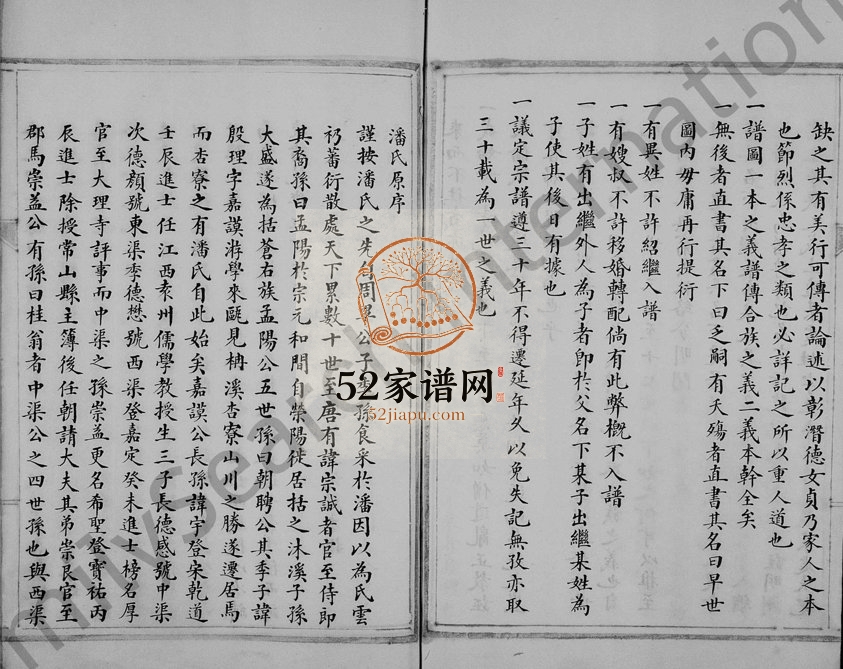 缺之其有美行可傳者論述以彰潛德女貞乃家人之本
也節烈係忠孝之類也必詳記之所以重人道也
一譜圖一本之義譜傳合族之義二義本幹全矣
一無後者直書其名下曰乏嗣有夭殤者直書其名曰早世
圖內毋庸再行提衍
一有異姓不許紹繼入譜
一有嫂叔不許移婚轉配倘有此弊概不入譜
一子姓有出繼外人為子者即於父名下某子出繼某姓為
子使其後日有據也
一議定宗譜遵三十年不得遷延年久以免失記無孜亦取
三十載為一世之義也
潘氏原序
謹按潘氏之先自周畢公子季孫食采於潘因以為氏雲
礽蕃衍散處天下累數十世至唐有諱宗誠者官至侍郎
其裔孫曰孟陽於宗元和間自榮陽徙居括之沐溪子孫
大盛遂為括蒼右族孟陽公五世孫曰朝聘公其季子諱
殷理字嘉謨游學來甌見柟溪杏寮山川之勝遂遷居焉
而杏寮之有潘氏自此始矣嘉謨公長孫諱宇登宋乾道
壬辰進士任江西袁州儒學教授生三子長德感號中渠
次德顏號東渠季德懋號西渠登嘉定癸未進士榜名厚
官至大理寺評事而中渠之孫崇益更名希聖登寶祐丙
辰進士除授常山縣主簿後任朝請大夫其弟崇艮官至
郡馬崇益公有孫曰桂翁者中渠公之四世孫也與西渠
52家谱网
52jiapu.com